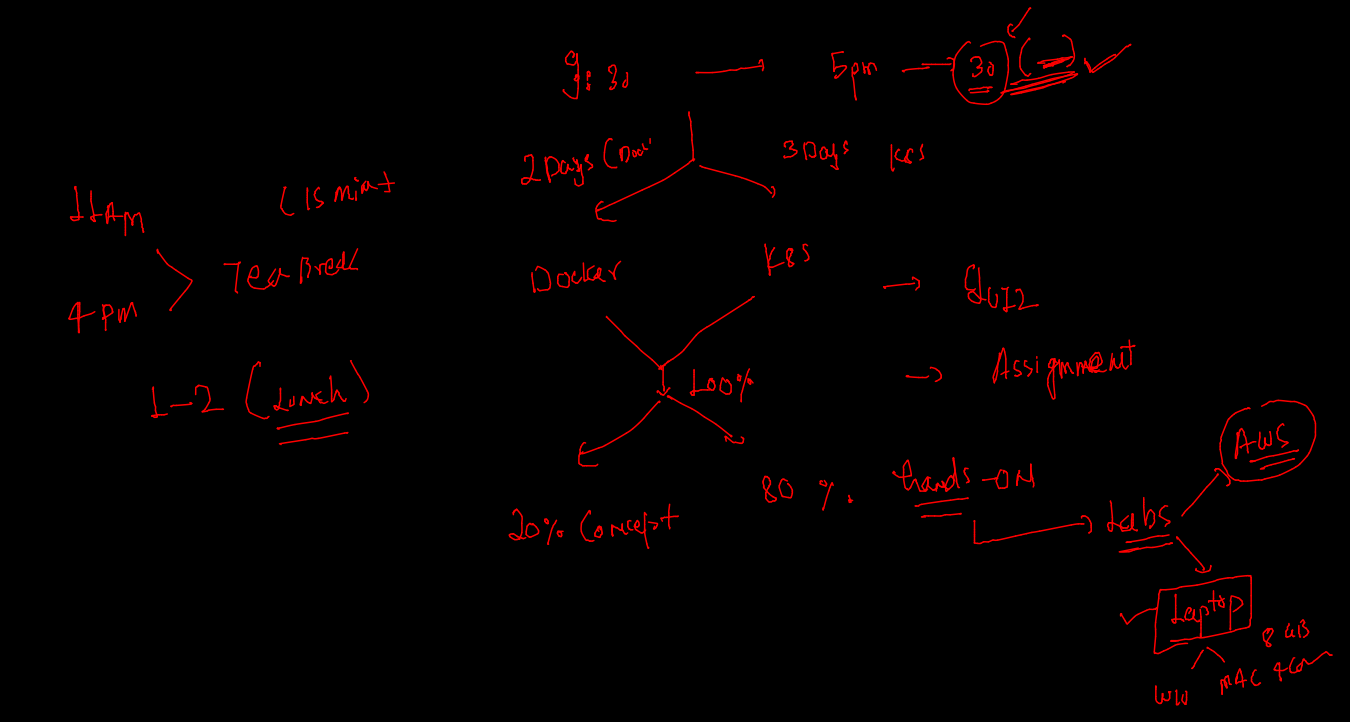 9:30 → 5pm → 30 ( )
2 Days (Dock
3 Days K8s
11 Am
(15 mint
Tea Break
4 PM
1-2 (Lunch)
Docker
K8S
→ QUIZ
→ Assignment
100%
20% Concept
80 %. Hands-ON
Labs
AWS
Laptop
8 GB
WIN
MAC